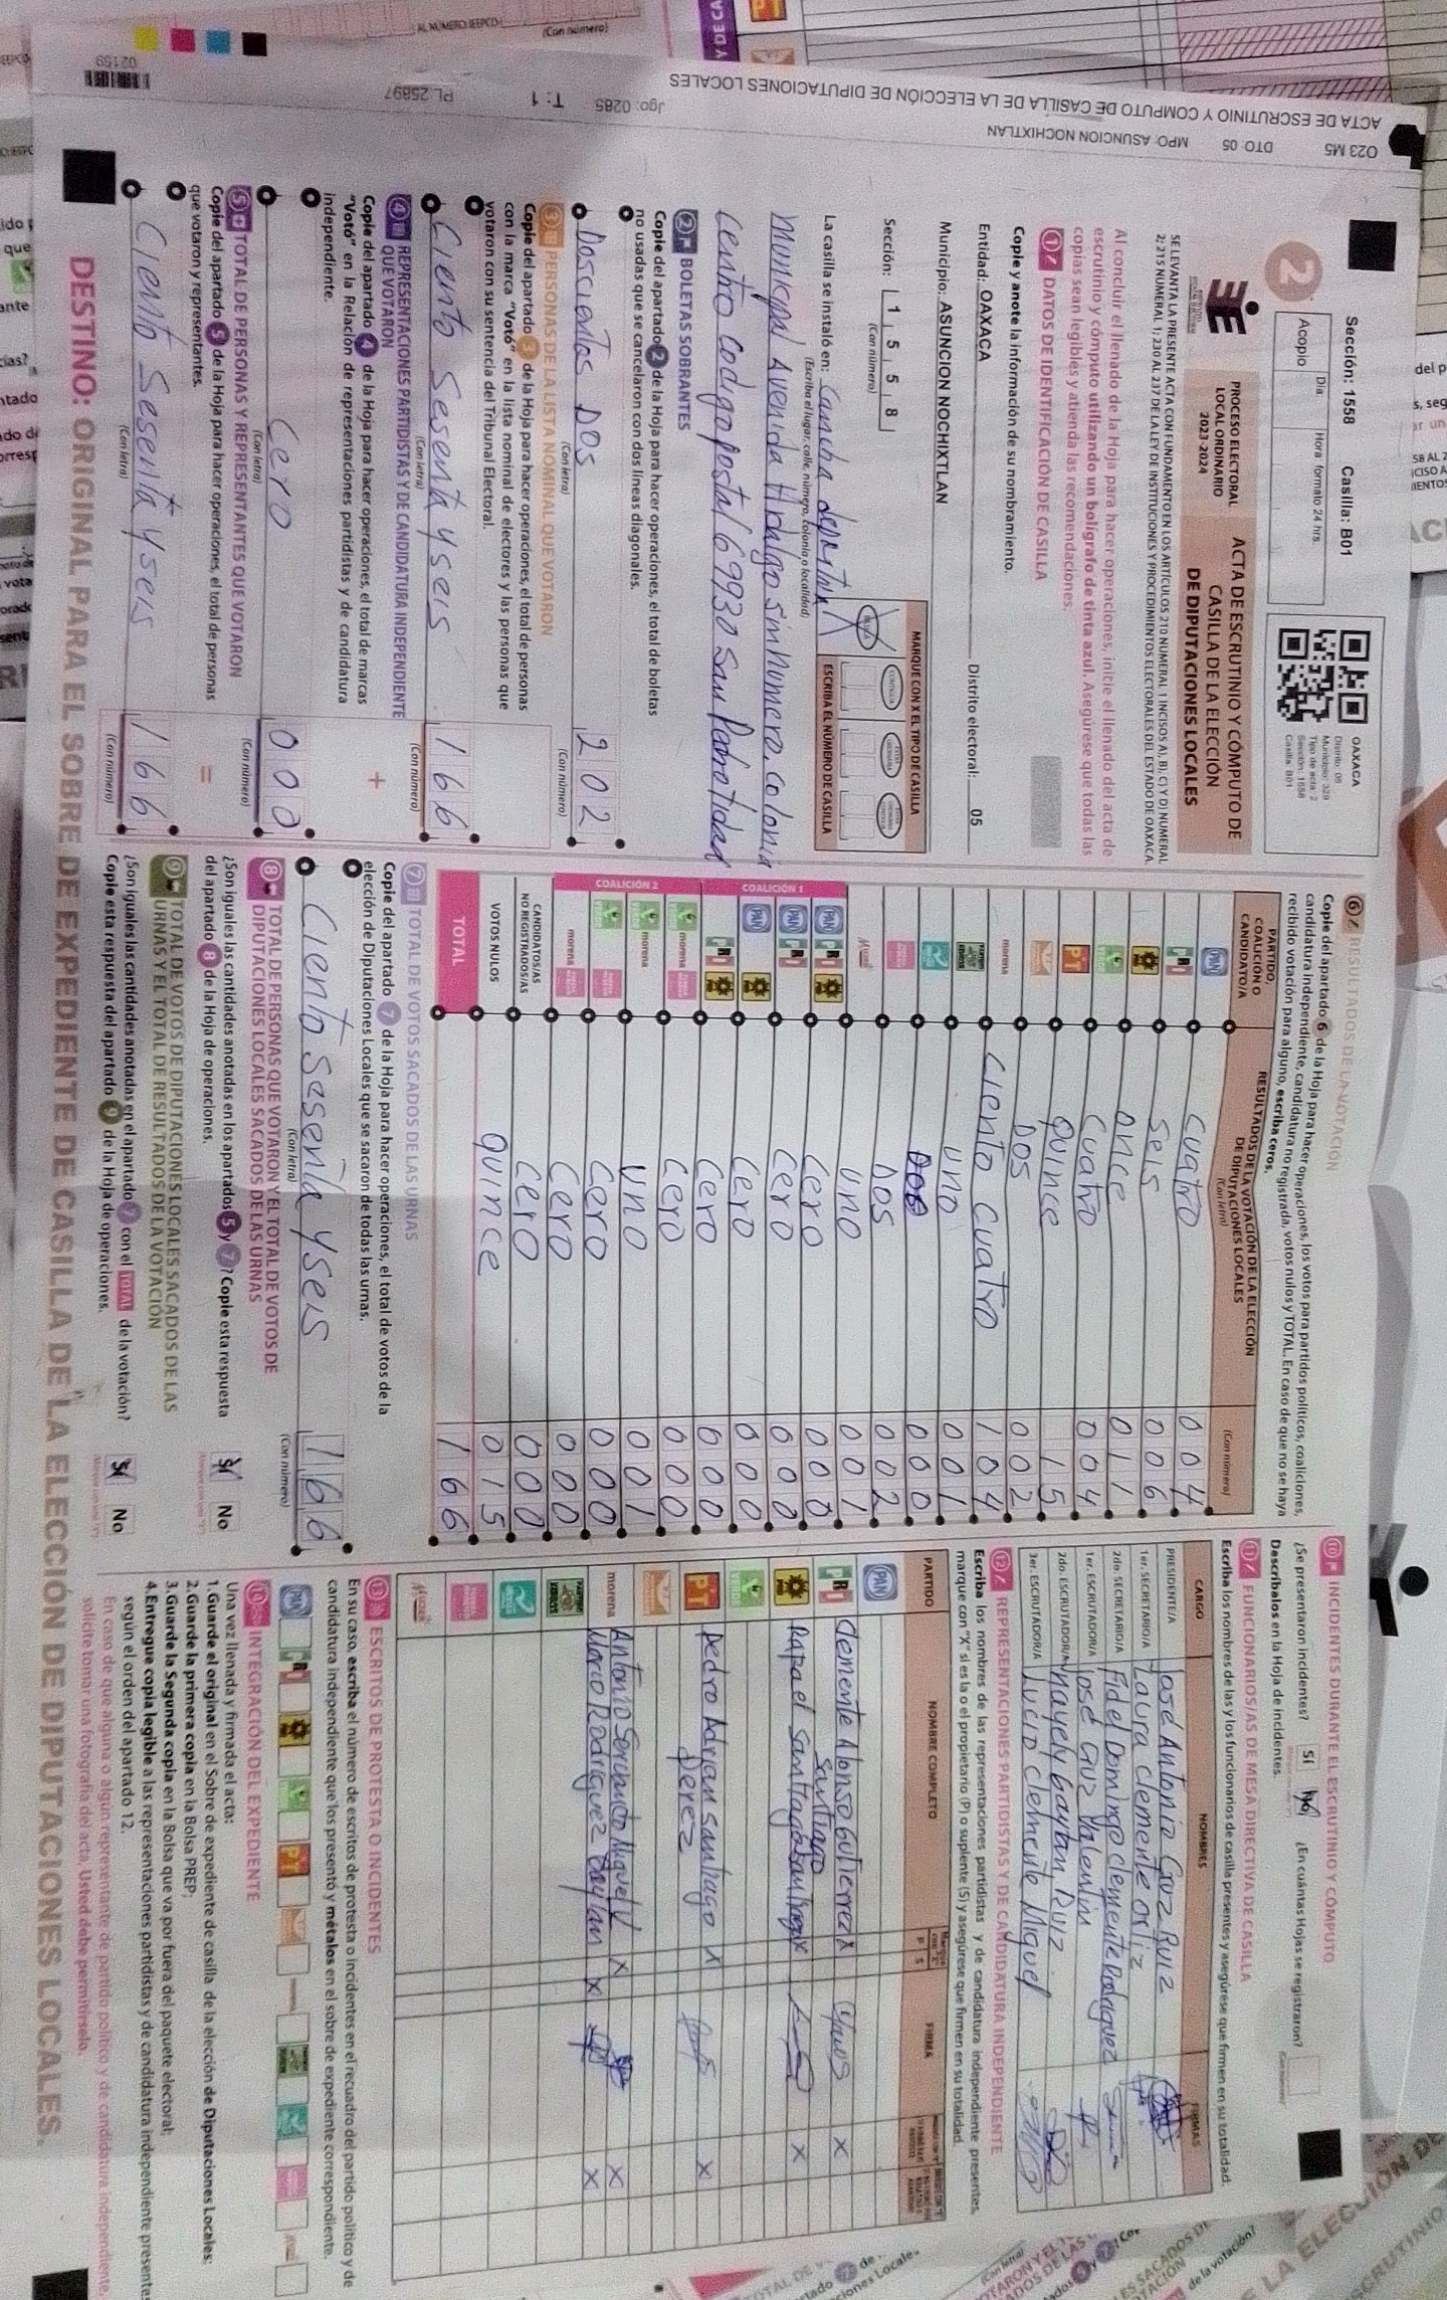 O23 M5 DTO: 05 MPO: ASUNCION NOCHIXTLAN
ACTA DE ESCRUTINIO Y CÓMPUTO DE CASILLA DE LA ELECCIÓN DE DIPUTACIONES LOCALES
Jgo: 0285 T: 1 PL 25897
02159
Sección: 1558 Casilla: B01
2
Acopio
Día
Hora: formato 24 hrs.
OAXACA
Distrito: 05
Municipio: 329
Tipo de acta: 2
Sección: 1558
Casilla: B01
PROCESO ELECTORAL
LOCAL ORDINARIO
2023-2024
ACTA DE ESCRUTINIO Y CÓMPUTO DE
CASILLA DE LA ELECCIÓN
DE DIPUTACIONES LOCALES
SE LEVANTA LA PRESENTE ACTA CON FUNDAMENTO EN LOS ARTÍCULOS 210 NUMERAL 1 INCISOS A), B), C) Y D) NUMERAL
2; 215 NUMERAL 1; 230 AL 237 DE LA LEY DE INSTITUCIONES Y PROCEDIMIENTOS ELECTORALES DEL ESTADO DE OAXACA
Al concluir el llenado de la Hoja para hacer operaciones, inicie el llenado del acta de
escrutinio y cómputo utilizando un bolígrafo de tinta azul. Asegúrese que todas las
copias sean legibles y atienda las recomendaciones.
1 DATOS DE IDENTIFICACIÓN DE CASILLA
Copie y anote la información de su nombramiento.
Entidad: OAXACA Distrito electoral: 05
Municipio: ASUNCION NOCHIXTLAN
Sección: 1 5 5 8
(Con número)
MARQUE CON X EL TIPO DE CASILLA
ESCRIBA EL NÚMERO DE CASILLA
La casilla se instaló en: Cancha deportiva
(Escriba el lugar, calle, número, colonia o localidad)
Municipal Avenida Hidalgo sin numero, colonia
Centro codigo postal 69930 San Pedro Tidaa
2 BOLETAS SOBRANTES
Copie del apartado 2 de la Hoja para hacer operaciones, el total de boletas
no usadas que se cancelaron con dos líneas diagonales.
Doscientos Dos 202
(Con letra) (Con número)
3 PERSONAS DE LA LISTA NOMINAL QUE VOTARON
Copie del apartado 3 de la Hoja para hacer operaciones, el total de personas
con la marca "Votó" en la lista nominal de electores y las personas que
votaron con su sentencia del Tribunal Electoral.
Ciento Sesenta y seis 166
(Con letra) (Con número)
4 REPRESENTACIONES PARTIDISTAS Y DE CANDIDATURA INDEPENDIENTE
QUE VOTARON
+
Copie del apartado 4 de la Hoja para hacer operaciones, el total de marcas
"Votó" en la Relación de representaciones partidistas y de candidatura
independiente.
Cero 000
(Con letra) (Con número)
5 TOTAL DE PERSONAS Y REPRESENTANTES QUE VOTARON
=
Copie del apartado 5 de la Hoja para hacer operaciones, el total de personas
que votaron y representantes.
Ciento Sesenta y seis 166
(Con letra) (Con número)
6 RESULTADOS DE LA VOTACIÓN
Copie del apartado 6 de la Hoja para hacer operaciones, los votos para partidos políticos, coaliciones,
candidatura independiente, candidatura no registrada, votos nulos y TOTAL. En caso de que no se haya
recibido votación para alguno, escriba ceros.
PARTIDO,
COALICIÓN O
CANDIDATO/A
RESULTADOS DE LA VOTACIÓN DE LA ELECCIÓN
DE DIPUTACIONES LOCALES
(Con letra) (Con número)
PAN cuatro 004
PRI Seis 006
once 011
cuatro 004
PT Quince 15
Dos 002
morena Ciento cuatro 104
uno 001
000
Dos 002
uno 001
COALICIÓN 1
PAN PRI cero 000
PAN PRI cero 000
PAN cero 000
PRI cero 000
COALICIÓN 2
morena cero 000
morena uno 001
cero 000
morena cero 000
CANDIDATOS/AS
NO REGISTRADOS/AS cero 000
VOTOS NULOS Quince 015
TOTAL 166
7 TOTAL DE VOTOS SACADOS DE LAS URNAS
Copie del apartado 7 de la Hoja para hacer operaciones, el total de votos de la
elección de Diputaciones Locales que se sacaron de todas las urnas.
Ciento Sesenta y seis 166
(Con letra) (Con número)
8 TOTAL DE PERSONAS QUE VOTARON Y EL TOTAL DE VOTOS DE
DIPUTACIONES LOCALES SACADOS DE LAS URNAS
¿Son iguales las cantidades anotadas en los apartados 5 y 7? Copie esta respuesta
del apartado 8 de la Hoja de operaciones.
Sí No
9 TOTAL DE VOTOS DE DIPUTACIONES LOCALES SACADOS DE LAS
URNAS Y EL TOTAL DE RESULTADOS DE LA VOTACIÓN
¿Son iguales las cantidades anotadas en el apartado 7 con el TOTAL de la votación?
Copie esta respuesta del apartado 9 de la Hoja de operaciones.
Sí No
10 INCIDENTES DURANTE EL ESCRUTINIO Y CÓMPUTO
¿Se presentaron incidentes? Sí No ¿En cuántas Hojas se registraron?
Descríbalos en la Hoja de incidentes.
11 FUNCIONARIOS/AS DE MESA DIRECTIVA DE CASILLA
Escriba los nombres de las y los funcionarios de casilla presentes y asegúrese que firmen en su totalidad.
CARGO NOMBRES FIRMAS
PRESIDENTE/A José Antonio Cruz Ruiz
1er. SECRETARIO/A Laura clemente ortiz
2do. SECRETARIO/A Fidel Domingo clemente Rodriguez
1er. ESCRUTADOR/A José Cruz Valentin
2do. ESCRUTADOR/A Nayely baytan Ruiz
3er. ESCRUTADOR/A Lucio clemente Miguel
12 REPRESENTACIONES PARTIDISTAS Y DE CANDIDATURA INDEPENDIENTE
Escriba los nombres de las representaciones partidistas y de candidatura independiente presentes,
marque con "X" si es la o el propietario (P) o suplente (S) y asegúrese que firmen en su totalidad.
PARTIDO NOMBRE COMPLETO P S FIRMA
PAN
PRI Clemente Alonso Gutierrez Santiago X X
Rafael Santiago Santiago X X
PT Pedro Adrian Santiago Perez X X
morena Antonio Serchando Miguel V X X
Mario Rodriguez Baylan X X
13 ESCRITOS DE PROTESTA O INCIDENTES
En su caso, escriba el número de escritos de protesta o incidentes en el recuadro del partido político y de
candidatura independiente que los presentó y métalos en el sobre de expediente correspondiente.
PAN PRI PT
14 INTEGRACIÓN DEL EXPEDIENTE
Una vez llenada y firmada el acta:
1. Guarde el original en el Sobre de expediente de casilla de la elección de Diputaciones Locales;
2. Guarde la primera copia en la Bolsa PREP;
3. Guarde la Segunda copia en la Bolsa que va por fuera del paquete electoral;
4. Entregue copia legible a las representaciones partidistas y de candidatura independiente presentes
según el orden del apartado 12.
En caso de que alguna o algún representante de partido político y de candidatura independiente,
solicite tomar una fotografía del acta, Usted debe permitírselo.
DESTINO: ORIGINAL PARA EL SOBRE DE EXPEDIENTE DE CASILLA DE LA ELECCIÓN DE DIPUTACIONES LOCALES.